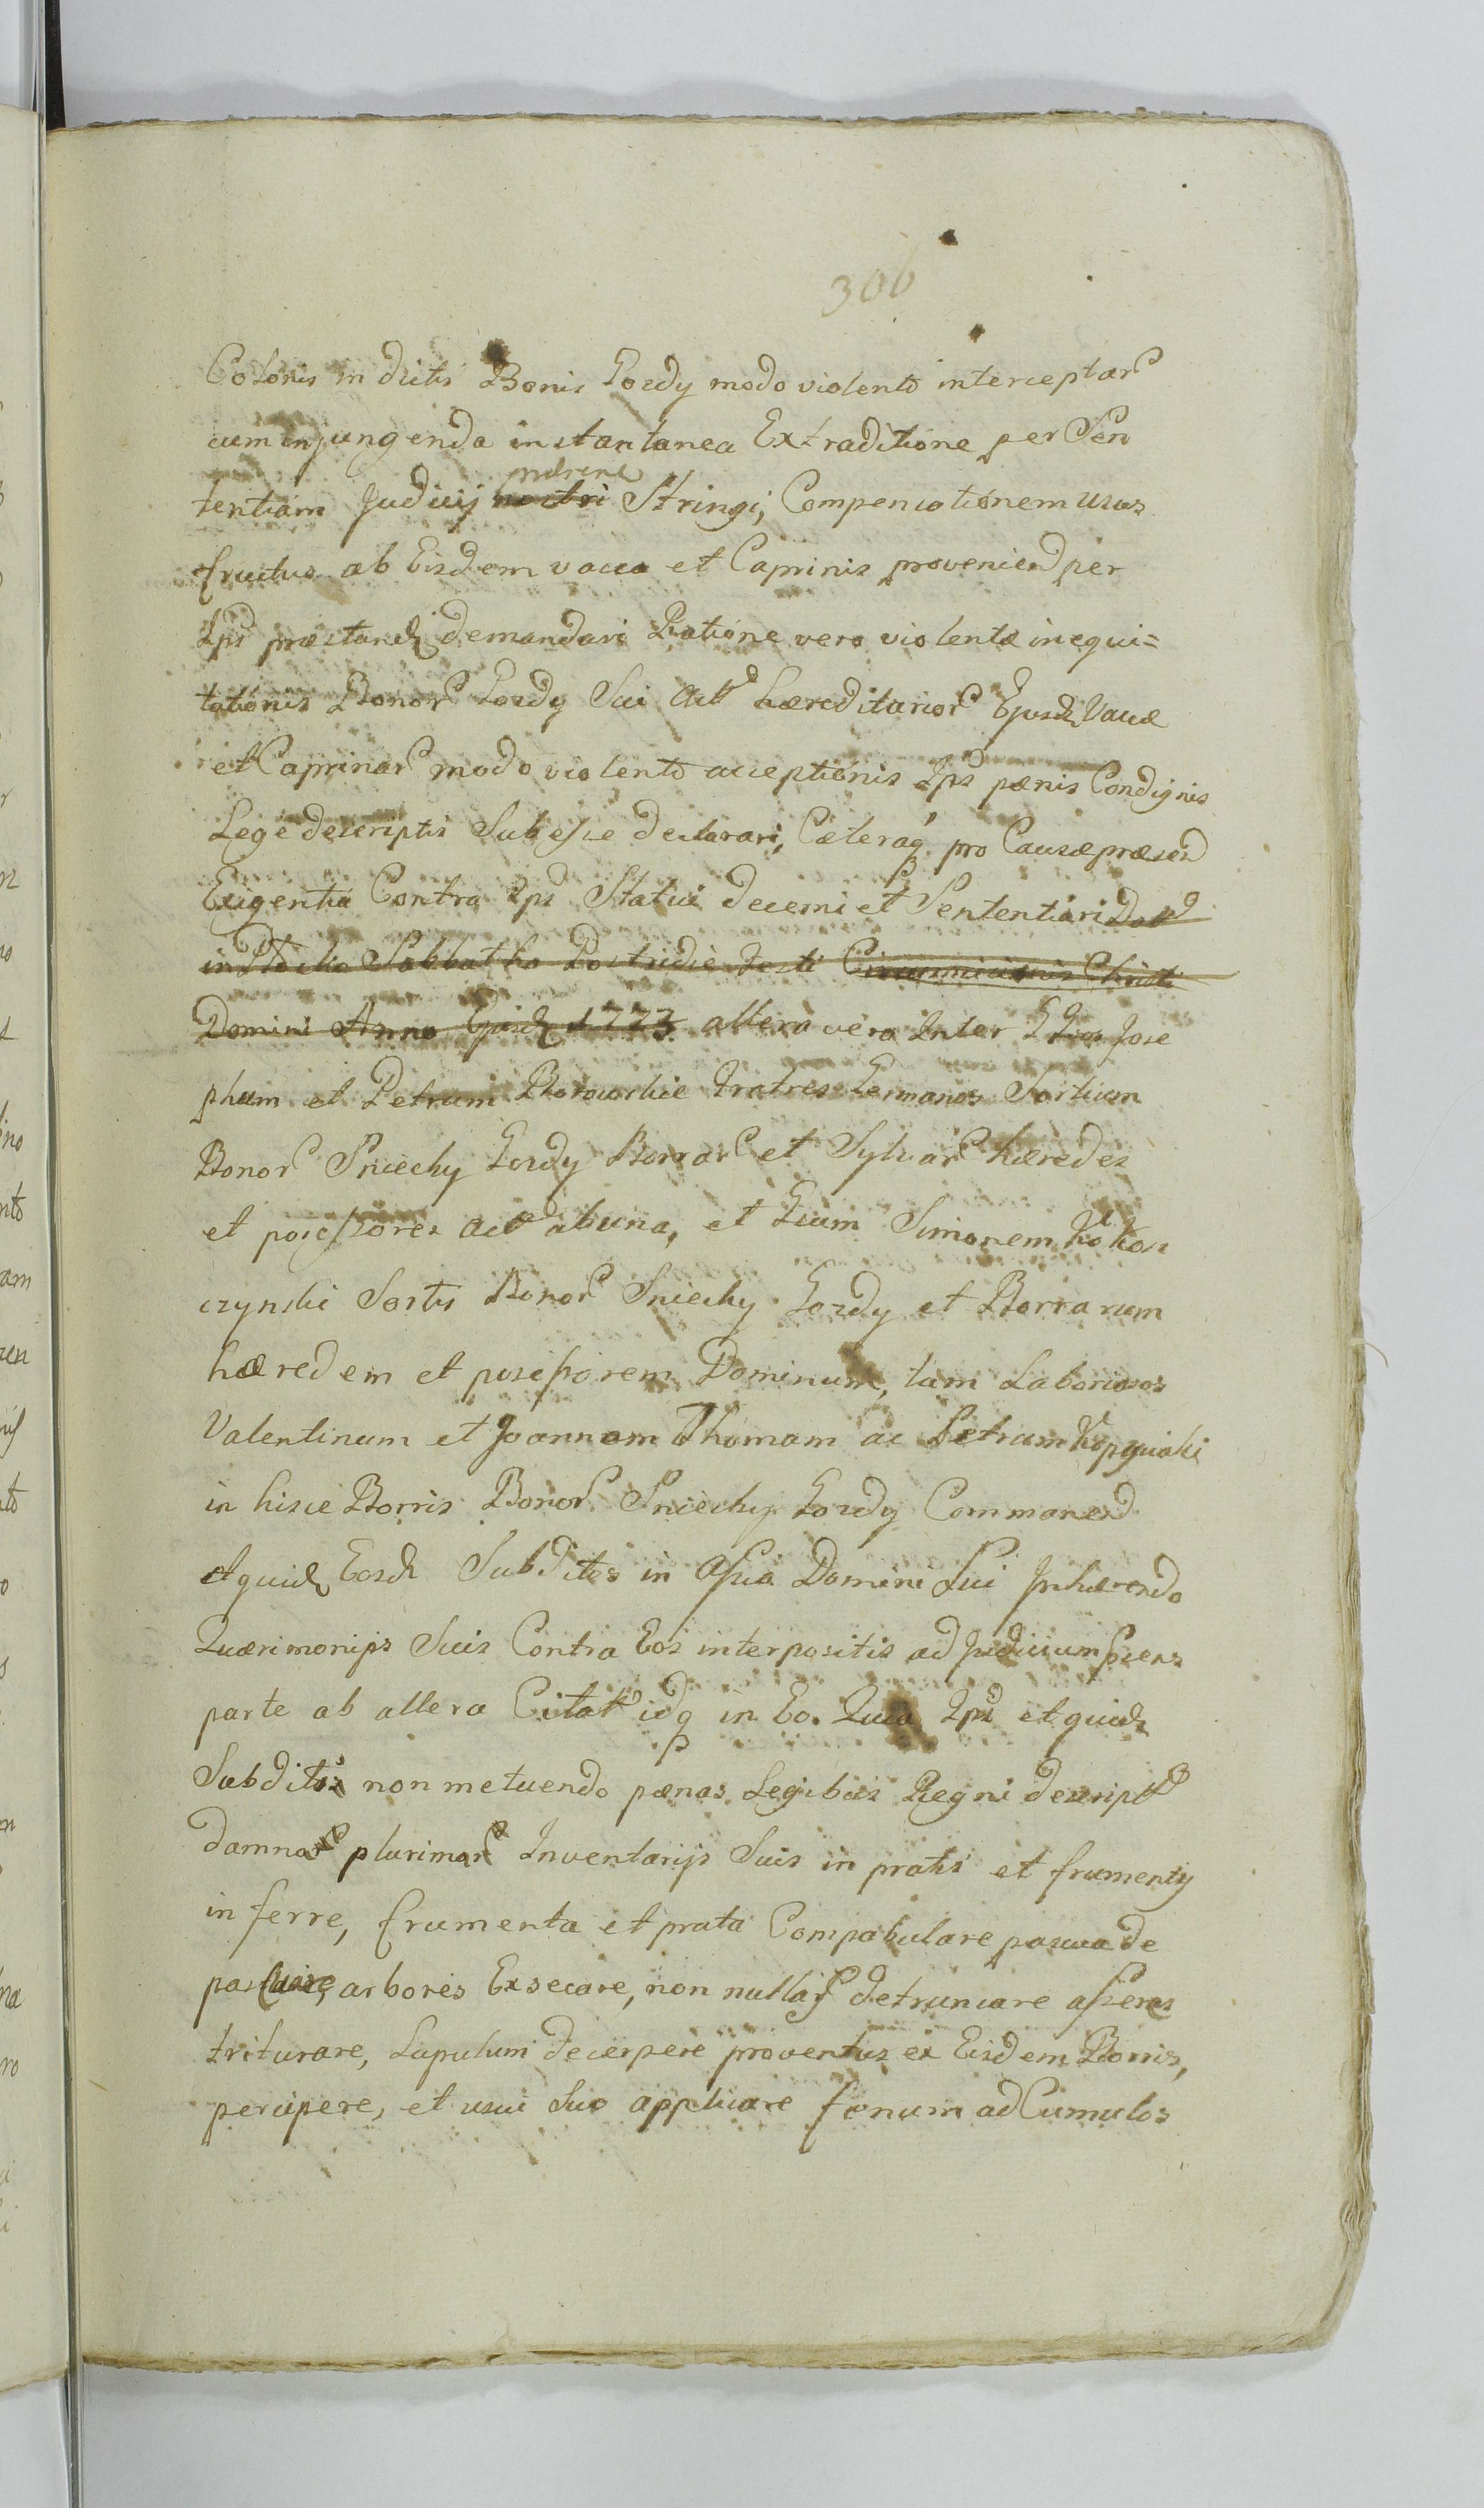 306
Colonis in dictis Bonis Gozdy modo violento interceptar
cum injungenda instantanea Extraditione per Sen
tentiam Judicij nostri Stringi, Compensationem usus
fructus ab Eisdem vacca et Caprinis proveniend per
Ips præstand demandari Ratione vero violentæ inequi=
tationis Bonor Gozdy Sui Act hæreditarior Ejusd Vaccæ
et Caprinar modo violento acceptionis Ips pænis Condignis
Lege descriptis Subesse declarari, Cæteraq pro Causæ præsen
Exigentia Contra Ips Statui decerni et Sententiari Dat
in Sabbatho Postridie Festi Circumcisionis Christi
Domini Anno Ejusd 1773 altera vero Inter GGros Jose
phum et Petrum Borowskie Fratres Germanos Sortium
Bonor Sniechy Gozdy Borrar et Sylvar hæredes
et possessores Act ab una, et Gsum Simonem Kokos
czynski Sortis Bonor Sniechy Gozdy et Borrarum
hæredem et possessorem Dominum, tam Laboriosos
Valentinum et Joannem Thomam ac Petrum
in hisce Borris Bonor Sniechy Gozdy Commorand
et quid Eosd Subditos in Assia Domini Sui Inhærendo
Quærimonijs Suis Contra Eos interpositis ad Judicium præns
parte ab altera Citat idq in Eo. Quia Ips et quid
Subditi non metuendo pænas Legibus Regni descript
damnar plurimar Inventarijs Suis in pratis et frumentis
inferre, frumenta et prata Compabulare pascua de
pascuare, arbores Exsecare, non nullas detruncare asseres
triturare, Lupulum decerpere proventus ex Eisdem Borris,
percipere, et usui Suo applicare fœnum ad Cumulos